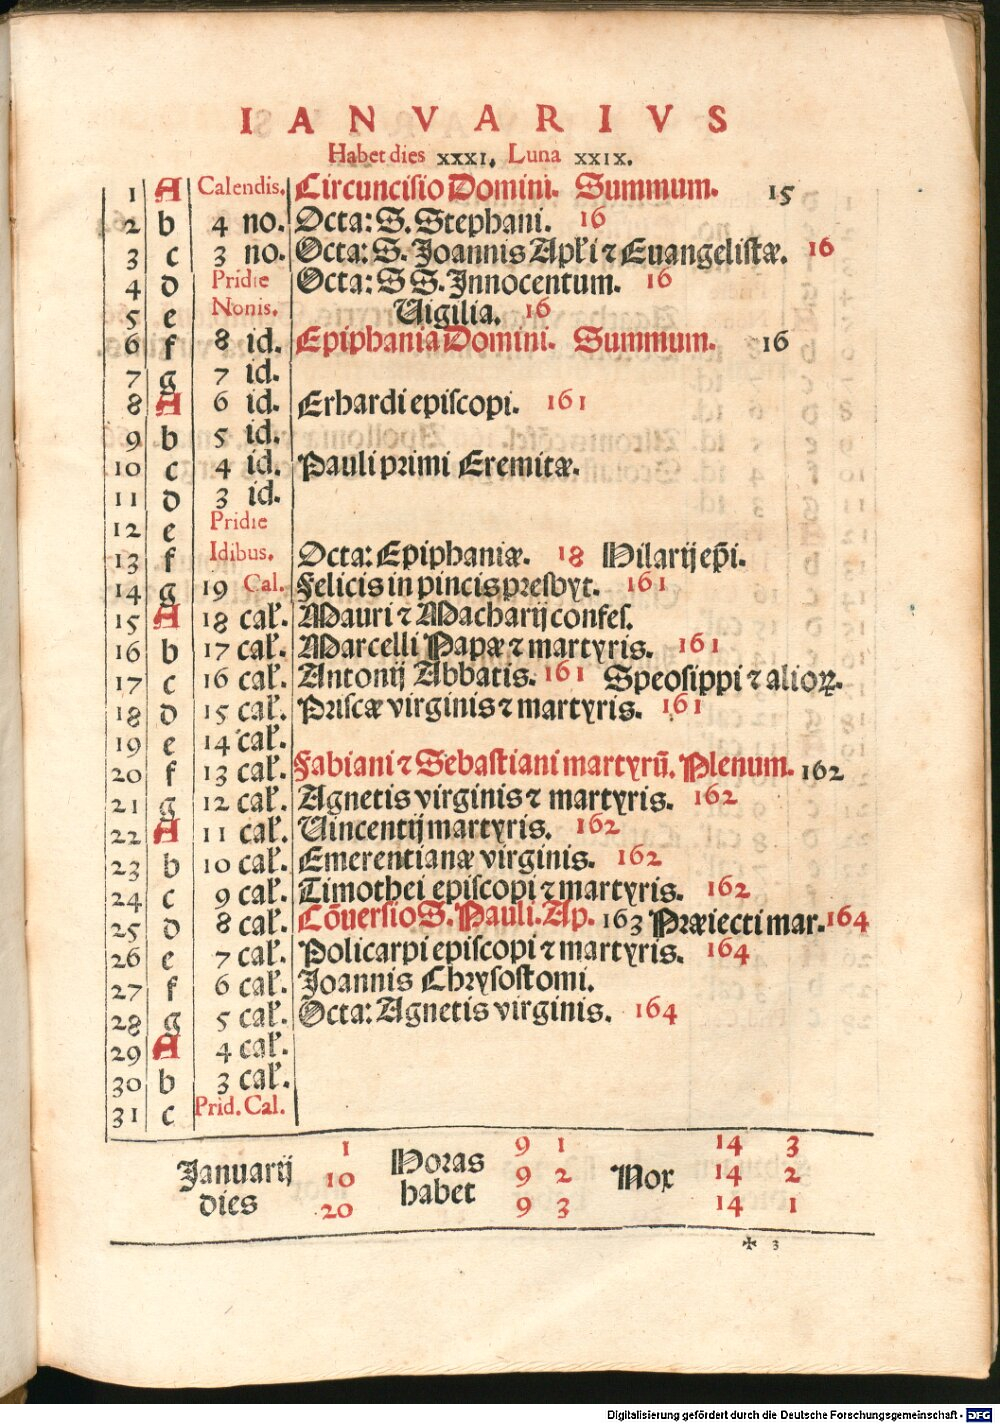 IANVARIVS
Habet dies XXXI. Luna XXIX.
1 A Calendis. Circuncisio Domini. Summum. 15
2 b 4 no. Octa: S. Stephani. 16
3 c 3 no. Octa: S. Joannis Apłi ⁊ Euangelistæ. 16
4 d Pridie Octa: S S. Innocentum. 16
5 e Nonis. Uigilia. 16
6 f 8 id. Epiphania Domini. Summum. 16
7 g 7 id.
8 A 6 id. Erhardi episcopi. 161
9 b 5 id.
10 c 4 id. Pauli primi Eremitæ.
11 d 3 id.
12 e Pridie
13 f Idibus. Octa: Epiphaniæ. 18 Hilarij ep̄i.
14 g 19 Cal. Felicis in pincis presbyt. 161
15 A 18 cal. Mauri ⁊ Macharij confes.
16 b 17 cal. Marcelli Papæ ⁊ martyris. 161
17 c 16 cal. Antonij Abbatis. 161 Speosippi ⁊ alioꝝ.
18 d 15 cal. Priscæ virginis ⁊ martyris. 161
19 e 14 cal.
20 f 13 cal. Fabiani ⁊ Sebastiani martyrū. Plenum. 162
21 g 12 cal. Agnetis virginis ⁊ martyris. 162
22 A 11 cal. Uincentij martyris. 162
23 b 10 cal. Emerentianæ virginis. 162
24 c 9 cal. Timothei episcopi ⁊ martyris. 162
25 d 8 cal. Cōuersio S. Pauli. Ap. 163 Præiecti mar. 164
26 e 7 cal. Policarpi episcopi ⁊ martyris. 164
27 f 6 cal. Joannis Chrysostomi.
28 g 5 cal. Octa: Agnetis virginis. 164
29 A 4 cal.
30 b 3 cal.
31 c Prid. Cal.
Januarij dies 1 10 20
Horas habet 9 1 9 2 9 3
Nox 14 3 14 2 14 1
✠ 3
Digitalisierung gefördert durch die Deutsche Forschungsgemeinschaft - DFG